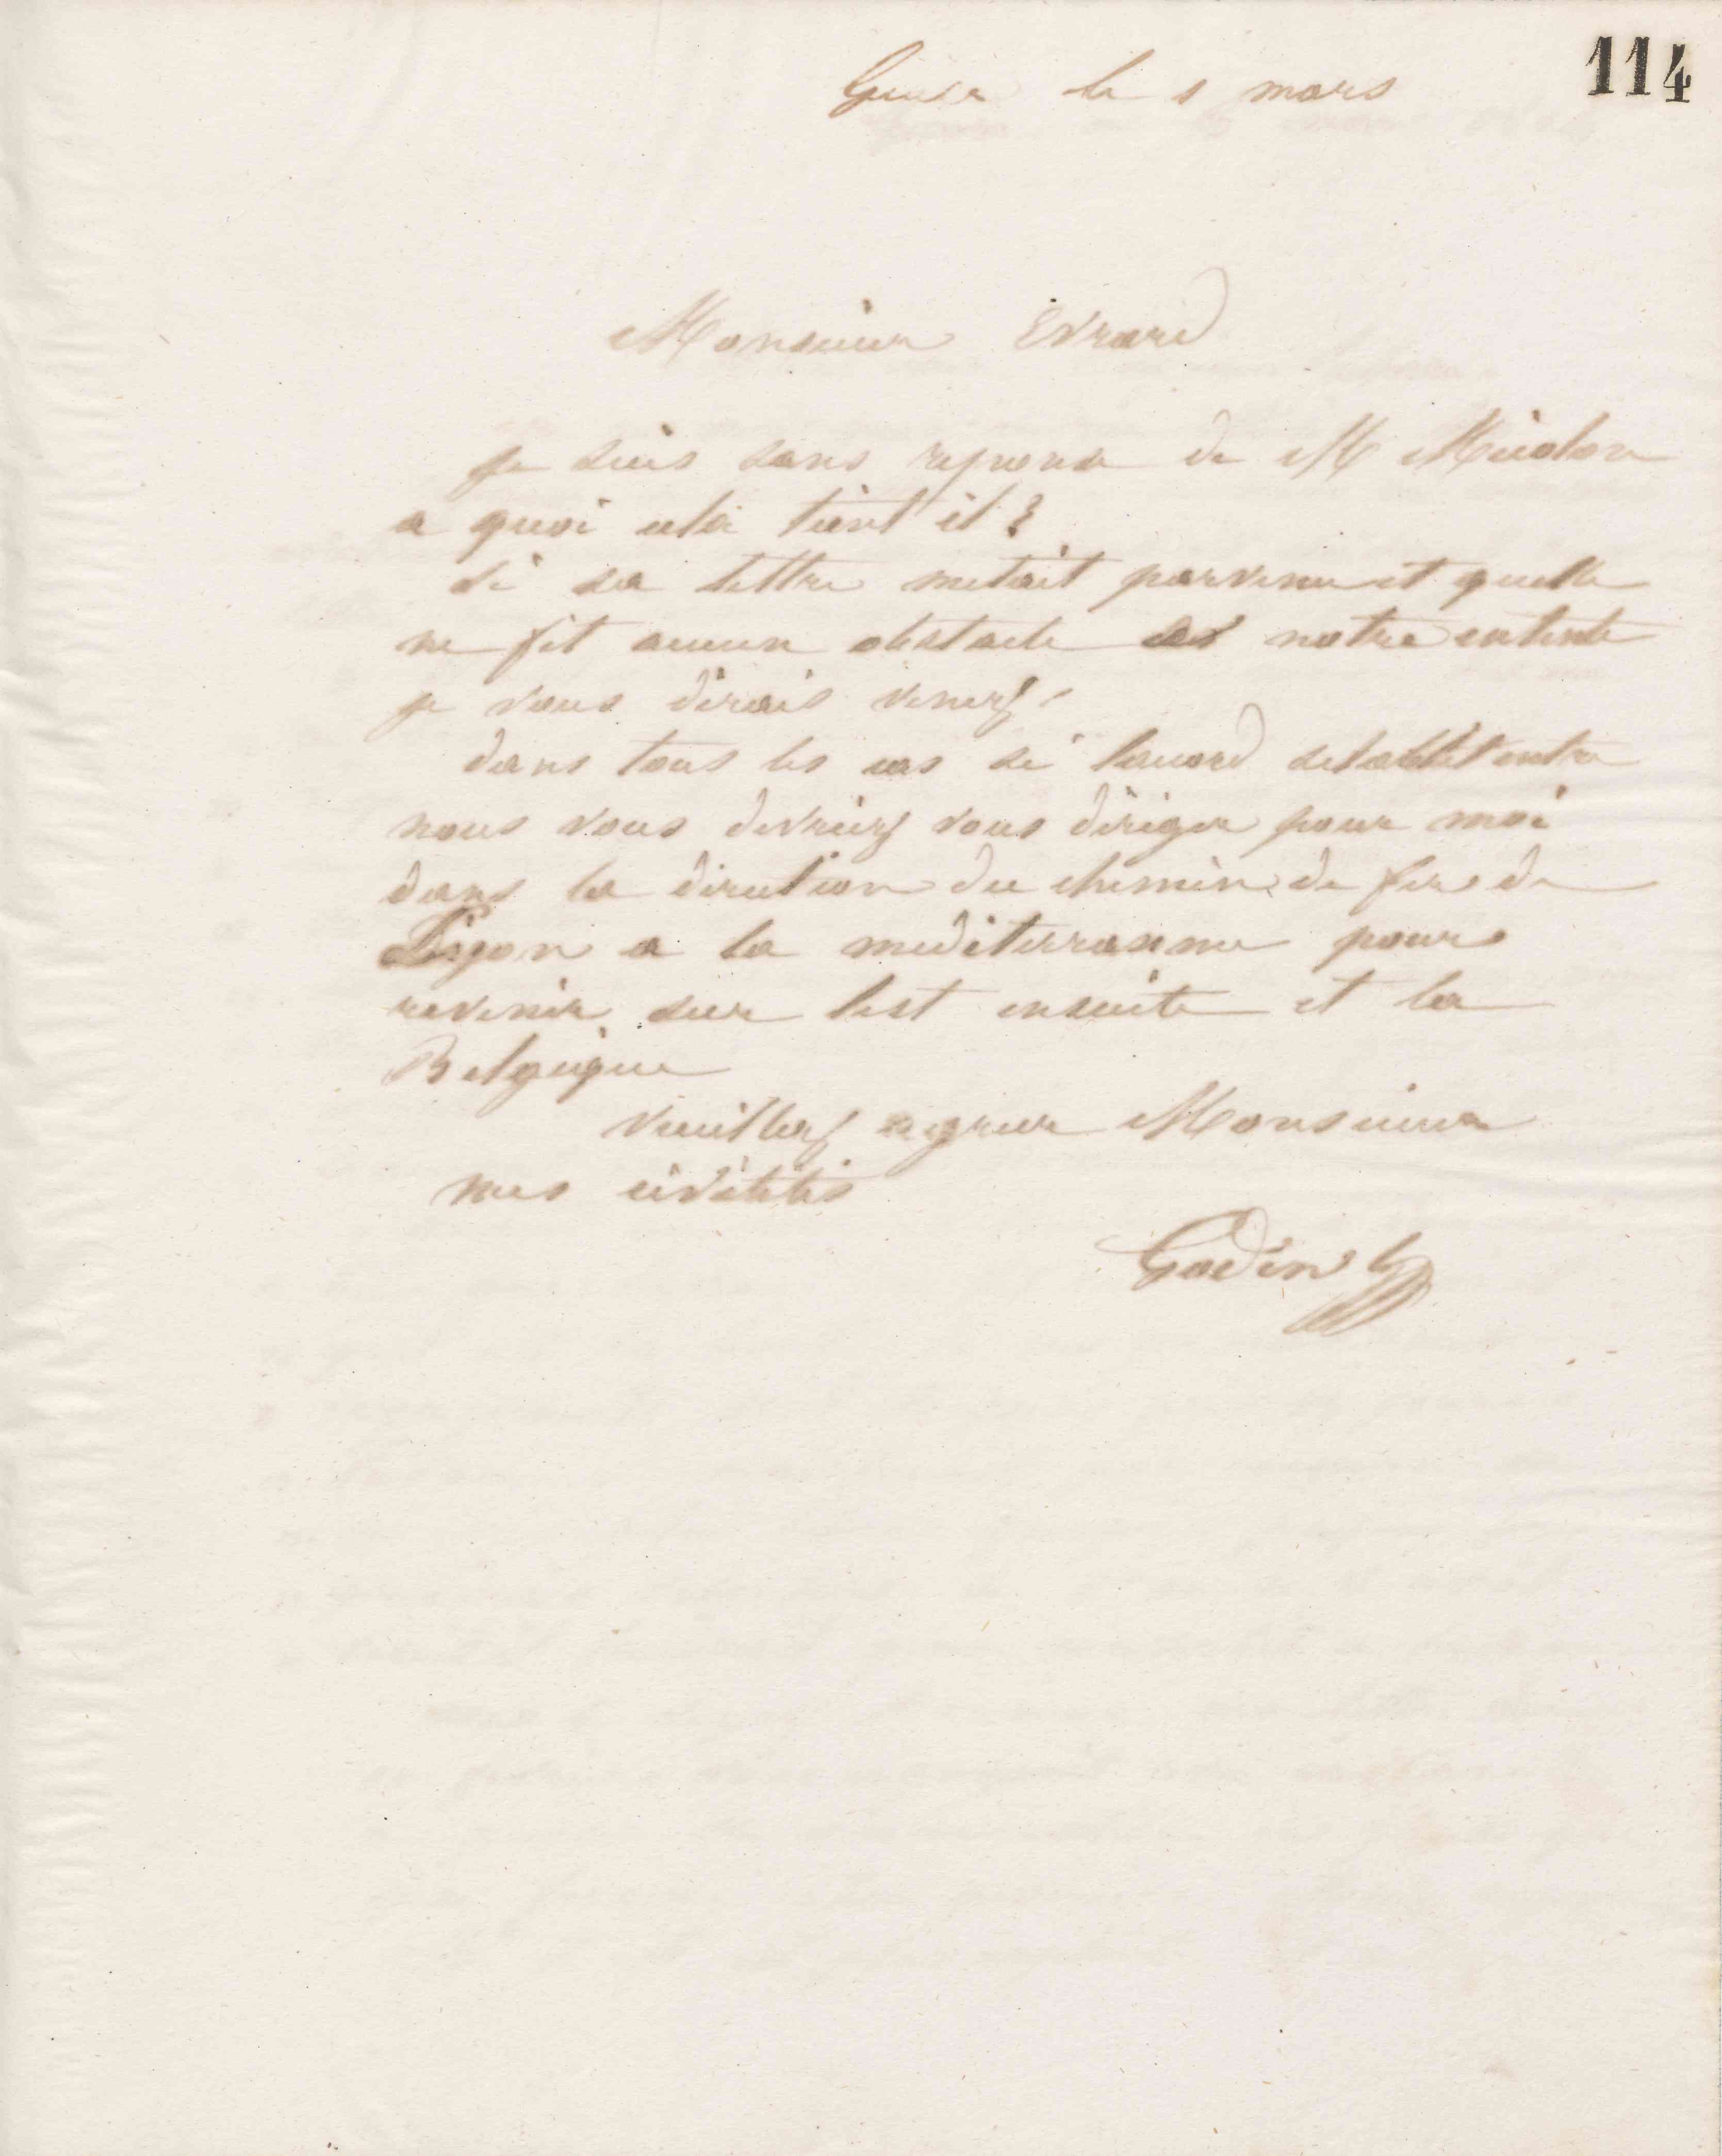 114
Guise le mars
Monsieur Evrard
je suis sans reponse de M
a quoi cela tient il ?
si sa lettre metait parvenue et quelle
ne fit aucun obstacle a notre entente
je vous dirais venez.
dans tous les cas si laccord setablit entre
nous vous devriez vous diriger pour moi
dans la direction du chemin de fer de
a la mediterranne pour
revenir sur lest ensuite et la
Belgique
veuillez agreer Monsieur
mes civilites
Godin